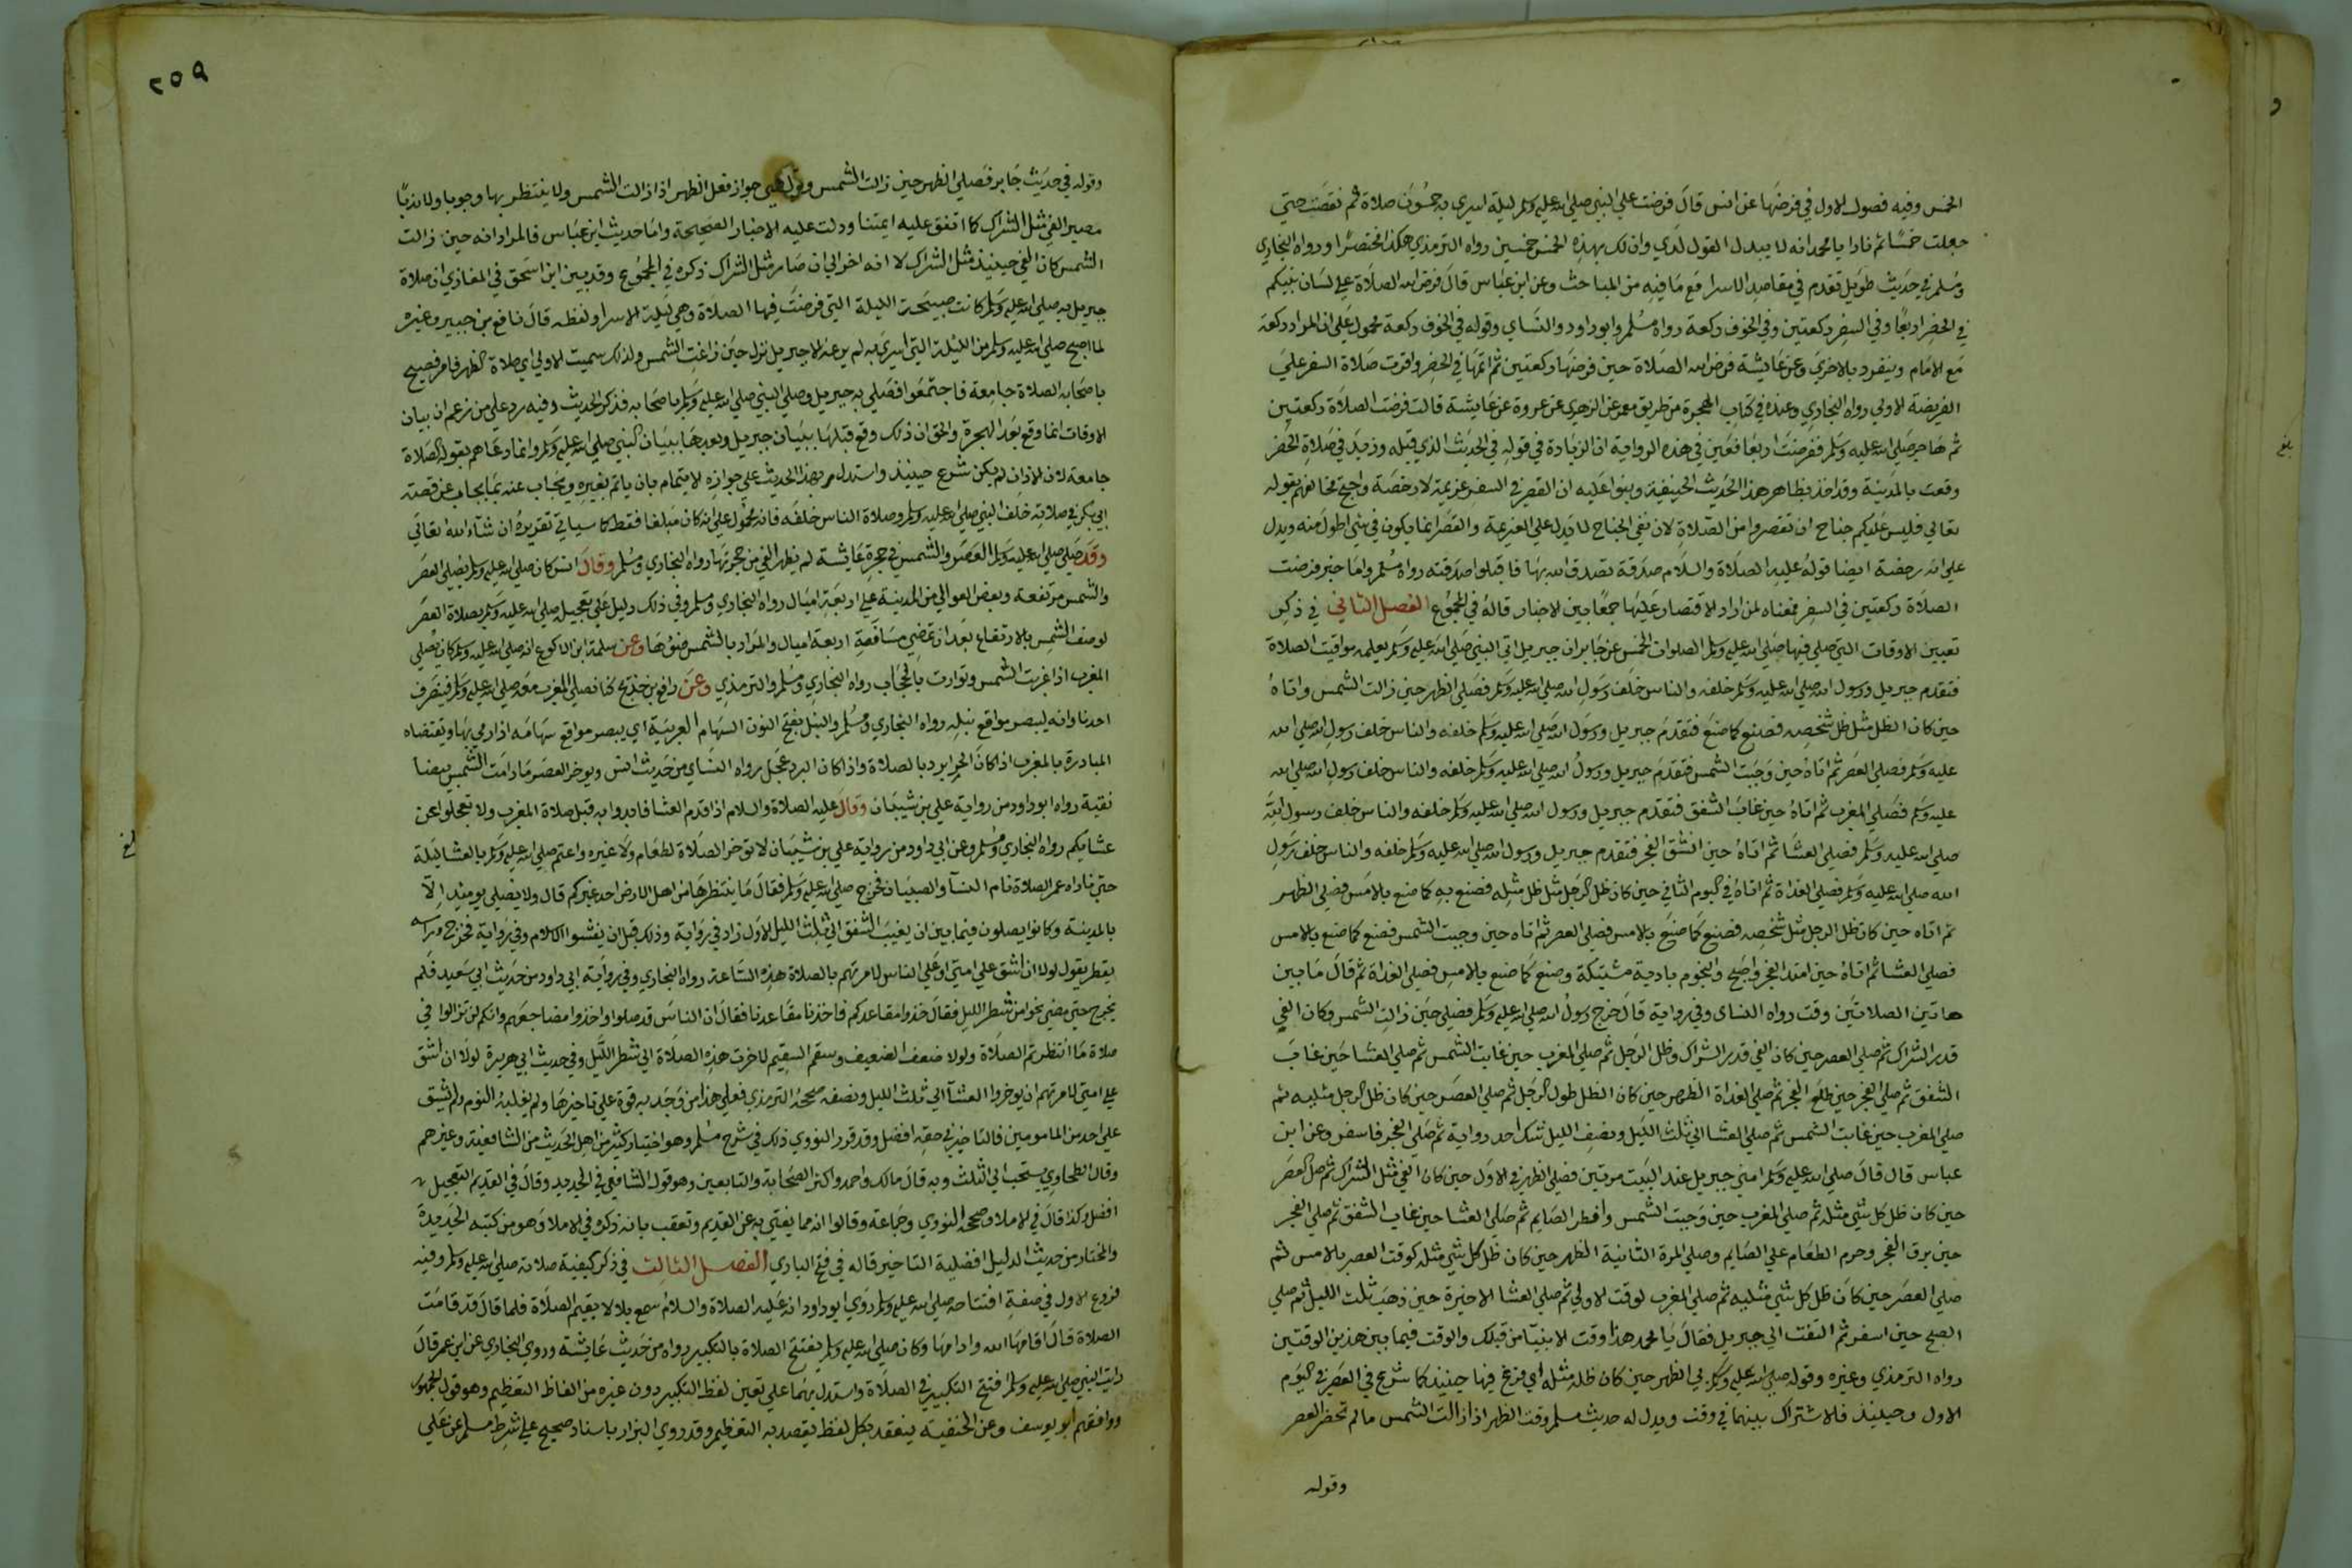 الخمس وفيه فصول الاول في فرضها عن انس قال فرضت علي النبي صلي الله عليه وسلم ليلة اسري به خمسون صلاة ثم نقصت حتي
جعلت خمسا ثم نادا يا محمد انه لا يبدل القول لدي وان لك بهذه الخمس خمسين رواه الترمذي هكذا مختصرا ورواه البخاري
ومسلم في حديث طويل تقدم في مقاصد الاسرا مع ما فيه من المباحث وعن ابن عباس قال فرض الله الصلاة علي لسان نبيكم
في الحضر اربعا وفي السفر ركعتين وفي الخوف ركعة رواه مسلم وابو داود والنساي وقوله في الخوف ركعة محمول علي ان المراد ركعة
مع الامام وينفرد بالاخري وعن عايشة فرض الله الصلاة حين فرضها ركعتين ثم اتمها في الحضر واقرت صلاة السفر علي
الفريضة الاولي رواه البخاري وعنده في كتاب الهجرة من طريق معمر عن الزهري عن عروة عن عايشة قالت فرضت الصلاة ركعتين
ثم هاجر صلي الله عليه وسلم ففرضت اربعا فعين في هذه الرواية ان الزيادة في قوله في الحديث الذي قبله وزيد في صلاة الحضر
وقعت بالمدينة وقد اخذ بظاهر هذا الحديث الحنيفية وبنوا عليه ان القصر في السفر عزيمة لا رخصة واحتج مخالفهم بقوله
تعالي فليس عليكم جناح ان تقصروا من الصلاة لان نفي الجناح لا يدل علي العزيمة والقصر انما يكون في شي اطول منه ويدل
علي انه رخصة ايضا قوله عليه الصلاة والسلام صدقة تصدق الله بها فاقبلوا صدقته رواه مسلم واما خبر فرضت
الصلاة ركعتين في السفر فمعناه لمن اراد الاقتصار عليها جمعا بين الاخبار قاله في المجموع الفصل الثاني في ذكر
تعيين الاوقات التي صلي فيها صلي الله عليه وسلم الصلوات الخمس عن جابر ان جبريل اتي النبي صلي الله عليه وسلم يعلمه مواقيت الصلاة
فتقدم جبريل ورسول الله صلي الله عليه وسلم خلفه والناس خلف رسول الله صلي الله عليه وسلم فصلي الظهر حين زالت الشمس واتاه
حين كان الظل مثل ظل شخصه فصنع كما صنع فتقدم جبريل ورسول الله صلي الله عليه وسلم خلفه والناس خلف رسول الله صلي الله
عليه وسلم فصلي العصر ثم اتاه حين وجبت الشمس فتقدم جبريل ورسول الله صلي الله عليه وسلم خلفه والناس خلف رسول الله صلي الله
عليه وسلم فصلي المغرب ثم اتاه حين غاب الشفق فتقدم جبريل ورسول الله صلي الله عليه وسلم خلفه والناس خلف رسول الله
صلي الله عليه وسلم فصلي العشا ثم اتاه حين انشق الفجر فتقدم جبريل ورسول الله صلي الله عليه وسلم خلفه والناس خلف رسول
الله صلي الله عليه وسلم فصلي الغداة ثم اتاه في اليوم الثاني حين كان ظل الرجل مثل ظل مثله فصنع به كما صنع بالامس فصلي الظهر
ثم اتاه حين كان ظل الرجل مثل شخصه فصنع كما صنع بالامس فصلي العصر ثم اتاه حين وجبت الشمس فصنع كما صنع بالامس
فصلي العشا ثم اتاه حين امتد الفجر واصبح والنجوم بادية مشتبكة وصنع كما صنع بالامس فصلي الغداة ثم قال ما بين
هاتين الصلاتين وقت رواه النساي وفي رواية قال خرج رسول الله صلي الله عليه وسلم فصلي حين زالت الشمس وكان الفي
قدر الشراك ثم صلي العصر حين كان الفي قدر الشراك وظل الرجل ثم صلي المغرب حين غابت الشمس ثم صلي العشا حين غاب
الشفق ثم صلي الفجر حين طلع الفجر ثم صلي الغداة الظهر حين كان الظل طول الرجل ثم صلي العصر حين كان ظل الرجل مثليه ثم
صلي المغرب حين غابت الشمس ثم صلي العشا الي ثلث الليل ونصف الليل شك احد رواية ثم صلي الفجر فاسفر وعن ابن
عباس قال قال صلي الله عليه وسلم امني جبريل عند البيت مرتين فصلي الظهر في الاول حين كان الفي مثل الشراك ثم صل العصر
حين كان ظل كل شي مثله ثم صلي المغرب حين وجبت الشمس وافطر الصايم ثم صلي العشا حين غاب الشفق ثم صلي الفجر
حين برق الفجر وحرم الطعام علي الصايم وصلي المرة الثانية الظهر حين كان ظل كل شي مثله كوقت العصر بالامس ثم
صلي العصر حين كان ظل كل شي مثليه ثم صلي المغرب لوقت الاولي ثم صلي العشا الاخيرة حين ذهب ثلث الليل ثم صلي
الصبح حين اسفر ثم التفت الي جبريل فقال يا محمد هذا وقت الانبيا من قبلك والوقت فيما بين هذين الوقتين
رواه الترمذي وغيره وقوله صلي الله عليه وسلم بي الظهر حين كان ظله مثله اي فرغ فيها حينيذ كما شرع في العصر في اليوم
الاول وحينيذ فلا اشتراك بينهما في وقت ويدل له حديث مسلم وقت الظهر اذا زالت الشمس ما لم تحضر العصر
وقوله
٢٥٩
وقوله في حديث جابر فصلي الظهر حين زالت الشمس جواز فعل الظهر اذا زالت الشمس ولا ينتظر بها وجوبا ولا ندبا
مصير الفي مثل الشراك كما اتفق عليه ايمتنا ودلت عليه الاخبار الصحيحة واما حديث ابن عباس فالمراد انه حين زالت
الشمس كان الفي حينيذ مثل الشراك لا انه اخر الي ان صار مثل الشراك ذكره في المجموع وقد بين ابن اسحق في المغازي ان صلاة
جبريل به صلي الله عليه وسلم كانت صبيحة الليلة التي فرضت فيها الصلاة وهي ليلة الاسرا ولفظه قال نافع بن جبير وغيره
لما اصبح صلي الله عليه وسلم من الليلة التي اسري به لم يرعه الا جبريل نزل حين زاغت الشمس ولذلك سميت الاولي اي صلاة الظهر فامر فصيح
باصحابه الصلاة جامعة فاجتمعوا فصلي به جبريل وصلي النبي صلي الله عليه وسلم باصحابه فذكر الحديث وفيه رد علي من زعم ان بيان
الاوقات انما وقع بعد الهجرة والحق ان ذلك وقع قبلها ببيان جبريل وبعدها ببيان النبي صلي الله عليه وسلم وانما دعاهم بقوله الصلاة
جامعة لان الاذان لم يكن شرع حينيذ واستدل بهذا الحديث علي جوازه الايتمام بان ياتم بغيره ويجاب عنه بما يجاب عن قصة
ابي بكر في صلاته خلف النبي صلي الله عليه وسلم وصلاة الناس خلفه فانه محمول علي انه كان مبلغا فقط كما سياتي تقريره ان شاء الله تعالي
وقد صلي صلي الله عليه وسلم العصر والشمس في حجرة عايشة لم يظهر الفي من حجرتها رواه البخاري ومسلم وقال انس كان صلي الله عليه وسلم يصلي العصر
والشمس مرتفعة وبعض العوالي من المدينة علي اربعة اميال رواه البخاري ومسلم وفي ذلك دليل علي تعجيل صلي الله عليه وسلم بصلاة العصر
لوصف الشمس بالارتفاع بعد ان تمضي مسافة اربعة اميال والمراد بالشمس ضوءها وعن سلمة ابن الاكوع انه صلي الله عليه وسلم كان يصلي
المغرب اذا غربت الشمس وتوارت بالحجاب رواه البخاري ومسلم والترمذي وعن رافع بن خديج كنا نصلي المغرب معه صلي الله عليه وسلم فينصرف
احدنا وانه ليبصر مواقع نبله رواه البخاري ومسلم والنبل بفتح النون السهام العربية اي يبصر مواقع سهامه اذا رمي بها ويقتضاه
المبادرة بالمغرب اذا كان الحر ابرد بالصلاة واذا كان البرد عجل رواه النساي من حديث انس ويوخر العصر ما دامت الشمس بيضا
نقية رواه ابو داود من رواية علي بن شيبان وقال عليه الصلاة والسلام اذا قدم العشا فابدوا به قبل صلاة المغرب ولا تعجلوا عن
عشايكم رواه البخاري ومسلم وعن ابي داود من رواية علي بن شيبان لا توخر الصلاة لطعام ولا غيره واعتم صلي الله عليه وسلم بالعشا ليلة
حتي ناداه عمر الصلاة نام النسآ والصبيان فخرج صلي الله عليه وسلم فقال ما ينتظرها من اهل الارض احد غيركم قال ولا يصلي يوميذ الا
بالمدينة وكانوا يصلون فيما بين ان يغيب الشفق الي ثلث الليل الاول زاد في رواية وذلك قبل ان يفشوا الكلام وفي رواية فخرج وراسه
يقطر يقول لولا ان اشق علي امتي او علي الناس لامرتهم بالصلاة هذه الساعة رواه البخاري وفي رواية ابي داود من حديث ابي سعيد فلم
يخرج حتي مضي نحو من شطر الليل فقال خذوا مقاعدكم فاخذنا مقاعدنا فقال ان الناس قد صلوا واخذوا مضاجعهم وانكم لن تزالوا في
صلاة ما انتظرتم الصلاة ولولا ضعف الضعيف وسقم السقيم لاخرت هذه الصلاة الي شطر الليل وفي حديث ابي هريرة لولا ان اشق
علي امتي لامرتهم ان يوخروا العشآ الي ثلث الليل ونصفه صححه الترمذي فعلي هذا من وجد به قوة علي تاخيرها ولم يغلبه النوم ولم يشق
علي احد من المامومين فالتاخير في حقه افضل وقد قرر النووي ذلك في شرح مسلم وهو اختيار كثير من اهل الحديث من الشافعية وغيرهم
وقال الطحاوي يستحب الي الثلث وبه قال مالك واحمد واكثر الصحابة والتابعين وهو قول الشافعي في الجديد وقال في القديم التعجيل
افضل وكذا قال في الاملا وصححه النووي وجماعة وقالوا انه مما يفتي به عن القديم وتعقب بانه ذكره في الاملا وهو من كتبه الجديدة
والمختار من حديث الدليل افضلية التاخير قاله في فتح الباري الفصل الثالث في ذكر كيفية صلاته صلي الله عليه وسلم وفيه
فروع الاول في صفة افتتاحه صلي الله عليه وسلم روي ابو داود انه عليه الصلاة والسلام سمع بلالا يقيم الصلاة فلما قال قد قامت
الصلاة قال اقامها الله وادامها وكان صلي الله عليه وسلم يفتتح الصلاة بالتكبير رواه من حديث عايشة وروي البخاري عن ابن عمر قال
رايت النبي صلي الله عليه وسلم افتتح التكبير في الصلاة واستدل بهما علي تعين لفظ التكبير دون غيره من الفاظ التعظيم وهو قول الجمهور
ووافقهم ابو يوسف وعن الحنفية ينعقد بكل لفظ يقصد به التعظيم وقد روي البزار باسناد صحيح علي شرط مسلم عن علي